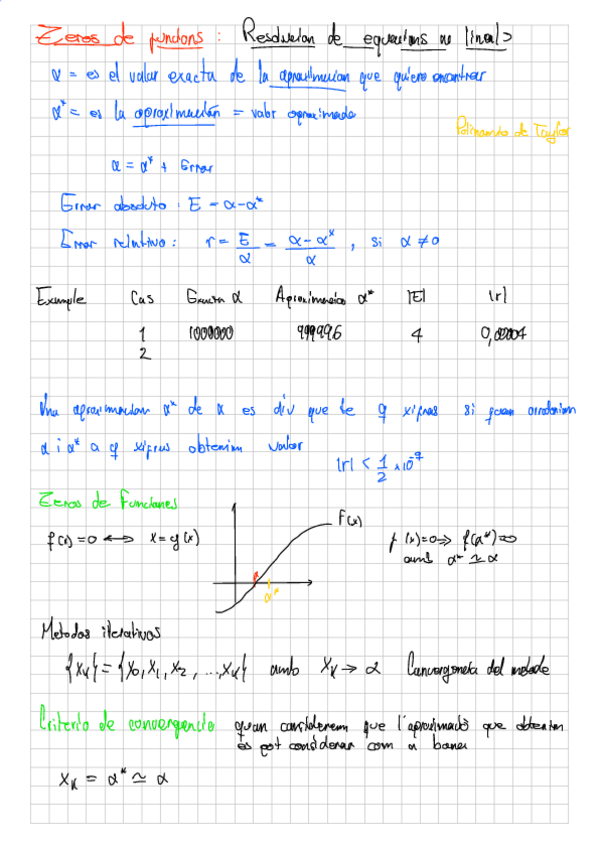 Zeros de funcions : Resolucion de equacions no lineal>
α = es el valor exacta de la aproximacion que quiero encontrar
α* = es la aproximación = valor aproximado
Polinomio de Taylor
α = α* + Error
Error absoluto : E = α-α*
Error relativo : r = E/α = (α-α*)/α , si α ≠ 0
Example Cas Exacta α Aproximacion α* |E| |r|
1 1000000 999996 4 0,00004
2
Una aproximacion α* de α es diu que te q xifras si quan arrodonim
α i α* a q xifras obtenim valor
|r| < 1/2 ×10^-q
Zeros de Funciones
f(x)=0 ⟷ x=g(x)
F(x)
f(x)=0 ⇒ f(α*)≃0
amb α* ≃ α
α
α*
Metodos iterativos
{x_k} = {x_0, x_1, x_2, ..., x_k} amb x_k → α Convergencia del metode
Criterio de convergencia quan considerem que l'aproximació que obtenim
es pot considerar com a bona
x_k = α* ≃ α